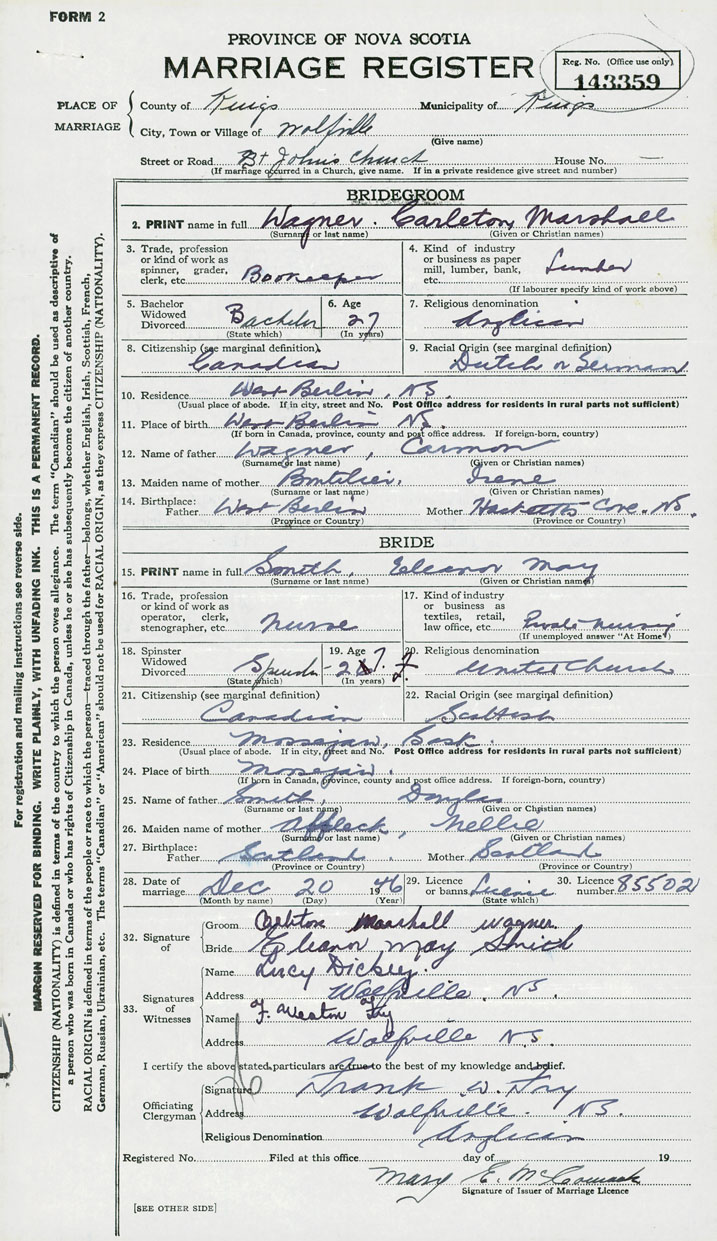 FORM 2
PROVINCE OF NOVA SCOTIA
MARRIAGE REGISTER
Reg. No. (Office use only)
143359
PLACE OF MARRIAGE
County of Kings Municipality of Kings
City, Town or Village of Wolfville
(Give name)
Street or Road St John's Church House No. —
(If marriage occurred in a Church, give name. If in a private residence give street and number)
BRIDEGROOM
2. PRINT name in full Wagner. Carleton, Marshall
(Surname or last name) (Given or Christian names)
3. Trade, profession or kind of work as spinner, grader, clerk, etc. Bookeeper
4. Kind of industry or business as paper mill, lumber, bank, etc. Lumber
(If labourer specify kind of work above)
5. Bachelor Widowed Divorced Bachelor (State which)
6. Age 27 (In years)
7. Religious denomination Anglican
8. Citizenship (see marginal definition) Canadian
9. Racial Origin (see marginal definition) Dutch or German
10. Residence West Berlin, NS.
(Usual place of abode. If in city, street and No. Post Office address for residents in rural parts not sufficient)
11. Place of birth West Berlin NS.
(If born in Canada, province, county and post office address. If foreign-born, country)
12. Name of father Wagner, Carmon
(Surname or last name) (Given or Christian names)
13. Maiden name of mother Boutilier. Irene
(Surname or last name) (Given or Christian names)
14. Birthplace: Father West Berlin Mother Hacketts Cove. NS.
(Province or Country) (Province or Country)
BRIDE
15. PRINT name in full Smith, Eleanor May
(Surname or last name) (Given or Christian names)
16. Trade, profession or kind of work as operator, clerk, stenographer, etc. Nurse
17. Kind of industry or business as textiles, retail, law office, etc. Nursing
(If unemployed answer "At Home")
18. Spinster Widowed Divorced (State which)
19. Age 27 (In years)
20. Religious denomination United Church
21. Citizenship (see marginal definition) Canadian
22. Racial Origin (see marginal definition) Scottish
23. Residence Moosejaw, Sask.
(Usual place of abode. If in city, street and No. Post Office address for residents in rural parts not sufficient)
24. Place of birth Moosejaw.
(If born in Canada, province, county and post office address. If foreign-born, country)
25. Name of father Smith, Douglas
(Surname or last name) (Given or Christian names)
26. Maiden name of mother Affleck, Nellie
(Surname or last name) (Given or Christian names)
27. Birthplace: Father Scotland Mother Scotland
(Province or Country) (Province or Country)
28. Date of marriage Dec 20 1946
(Month by name) (Day) (Year)
29. Licence or banns License (State which)
30. Licence number 85502
32. Signature of
Groom Carleton Marshall Wagner
Bride Eleanor May Smith
33. Signatures of Witnesses
Name Lucy Dickey.
Address Wolfville. NS.
Name F. Weston Fry
Address Wolfville NS.
I certify the above stated particulars are true to the best of my knowledge and belief.
Officiating Clergyman
Signature Frank W. Fry
Address Wolfville. NS.
Religious Denomination Anglican
Registered No. Filed at this office day of 19
Mary E. McCormack
Signature of Issuer of Marriage Licence
[SEE OTHER SIDE]
For registration and mailing instructions see reverse side.
MARGIN RESERVED FOR BINDING. WRITE PLAINLY, WITH UNFADING INK. THIS IS A PERMANENT RECORD.
CITIZENSHIP (NATIONALITY) is defined in terms of the country to which the person owes allegiance. The term "Canadian" should be used as descriptive of
a person who was born in Canada or who has rights of Citizenship in Canada, unless he or she has subsequently become the citizen of another country.
RACIAL ORIGIN is defined in terms of the people or race to which the person—traced through the father—belongs, whether English, Irish, Scottish, French,
German, Russian, Ukrainian, etc. The terms "Canadian" or "American" should not be used for RACIAL ORIGIN, as they express CITIZENSHIP (NATIONALITY).